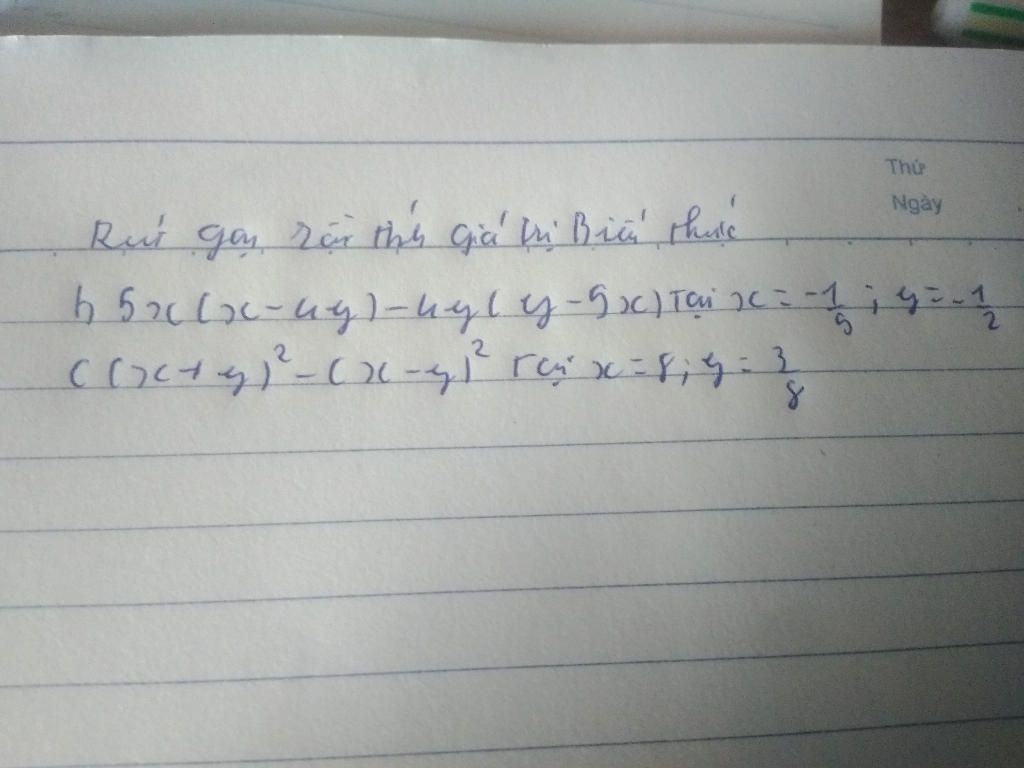 Thứ
Ngày
Rút gọn rồi tính giá trị Biểu thức
b 5x(x-4y)-4y(y-5x) Tại x=-1/5; y=-1/2
C (x+y)²-(x-y)² Tại x=8; y=3/8